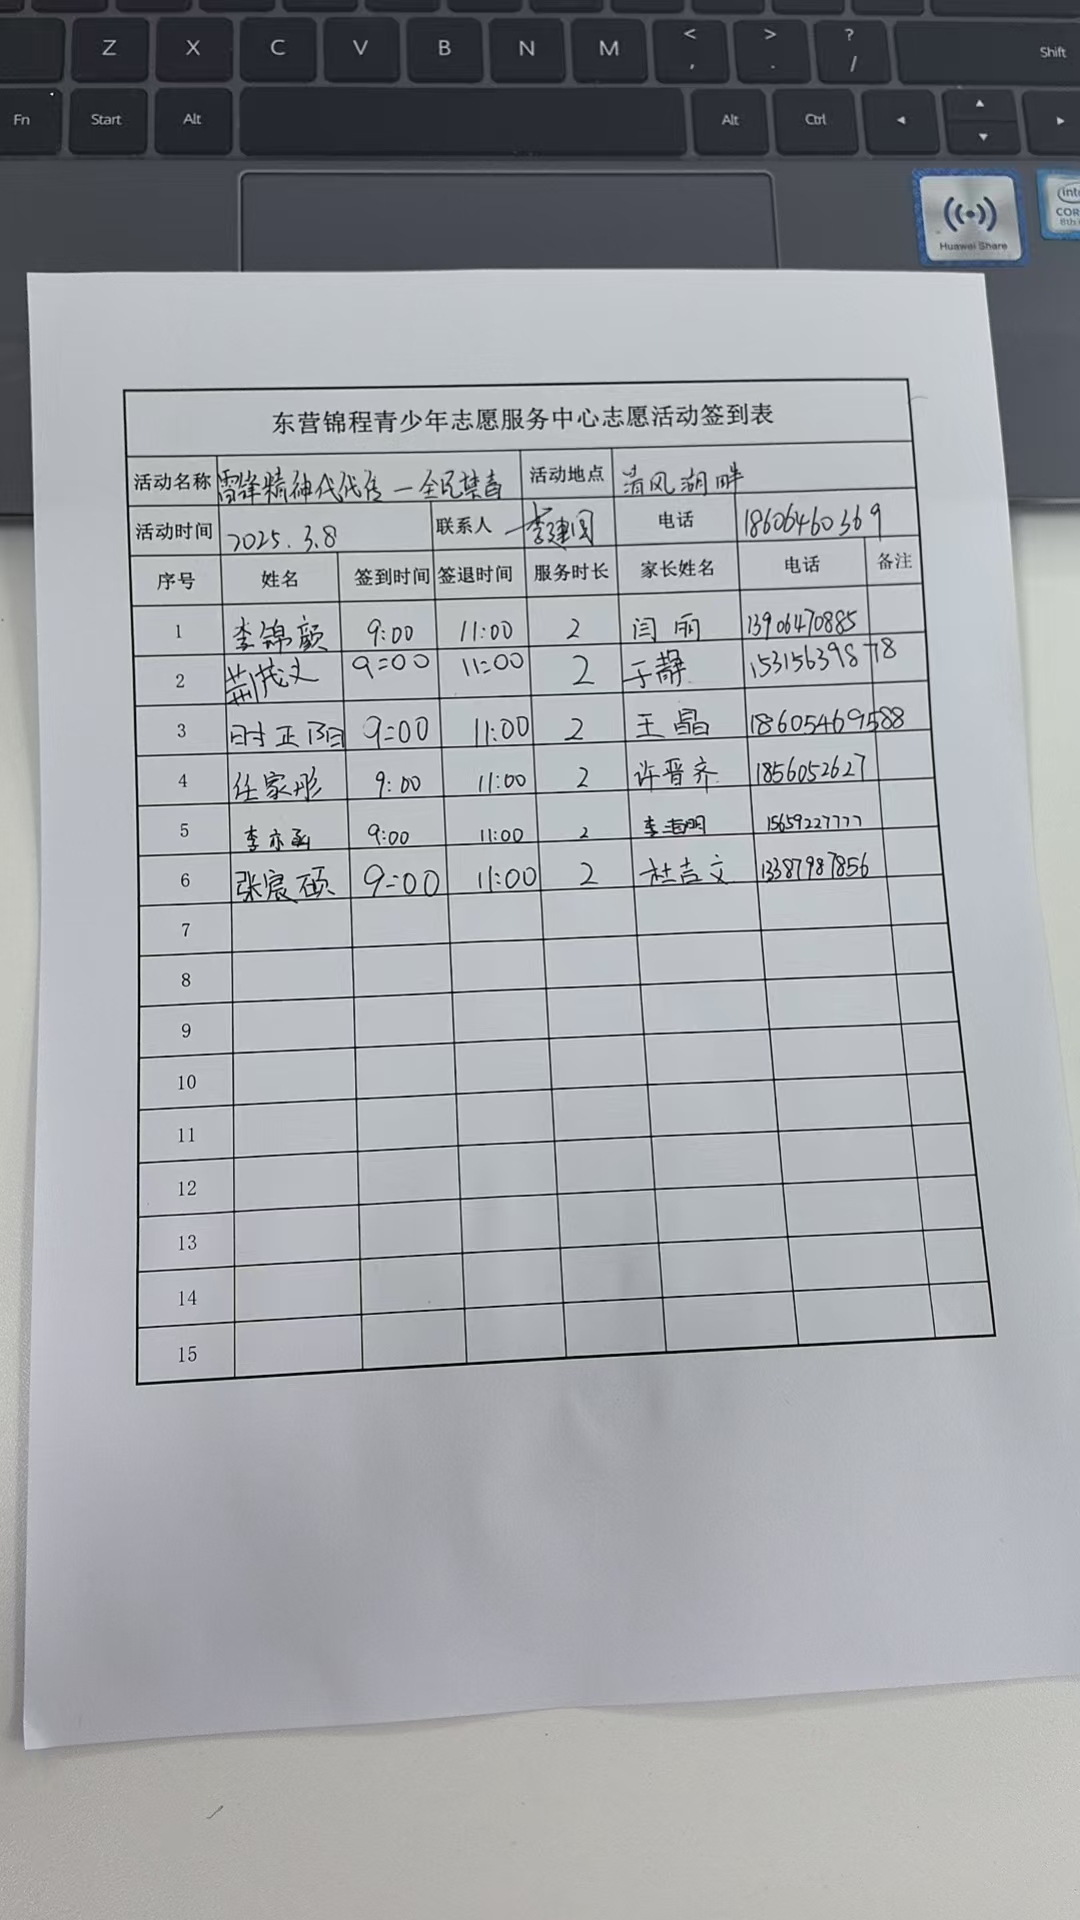 Z X C V B N M < , > . ? / Shift
Fn Start Alt Alt Ctrl ◄ ▲ ▼ ►
Huawei Share
COR
8th
东营锦程青少年志愿服务中心志愿活动签到表
活动名称 雷锋精神代代传—全民禁毒 活动地点 清风湖畔
活动时间 2025.3.8 联系人 李建国 电话 18606460369
序号 姓名 签到时间 签退时间 服务时长 家长姓名 电话 备注
1 李锦颜 9:00 11:00 2 闫丽 13906470885
2 荆茂文 9:00 11:00 2 于静 15315639878
3 时正阳 9:00 11:00 2 王晶 18605469588
4 任家彤 9:00 11:00 2 许晋齐 1856052627
5 李亦函 9:00 11:00 2 李 明 15659227777
6 张宸硕 9:00 11:00 2 杜吉文 13387987856
7
8
9
10
11
12
13
14
15